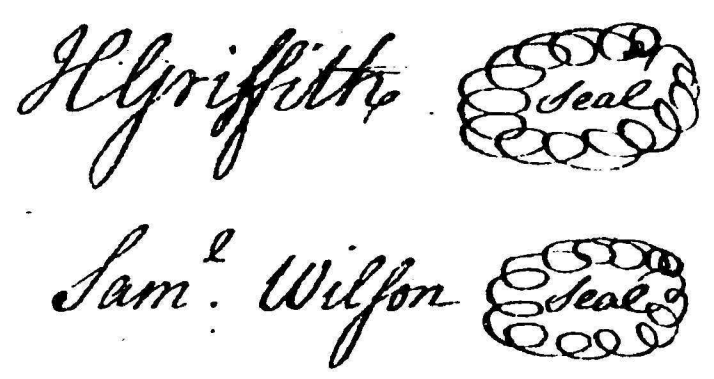 HGriffith Seal
Sam.l Wilson Seal